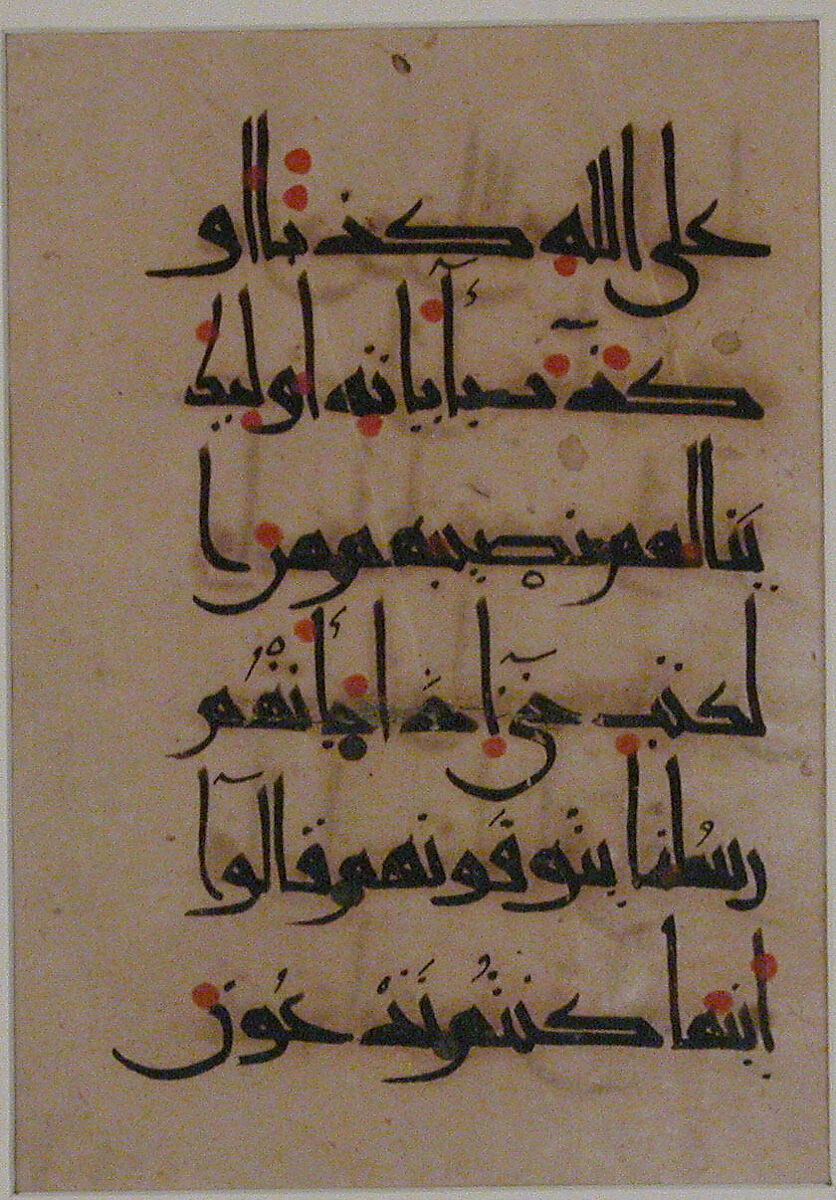 على الله كذبا او
كذب بآياته اولئك
ينالهم نصيبهم من ا
لكتب حتى اذا جاءتهم
رسلنا يتوفونهم قالوا
اينما كنتم تدعون